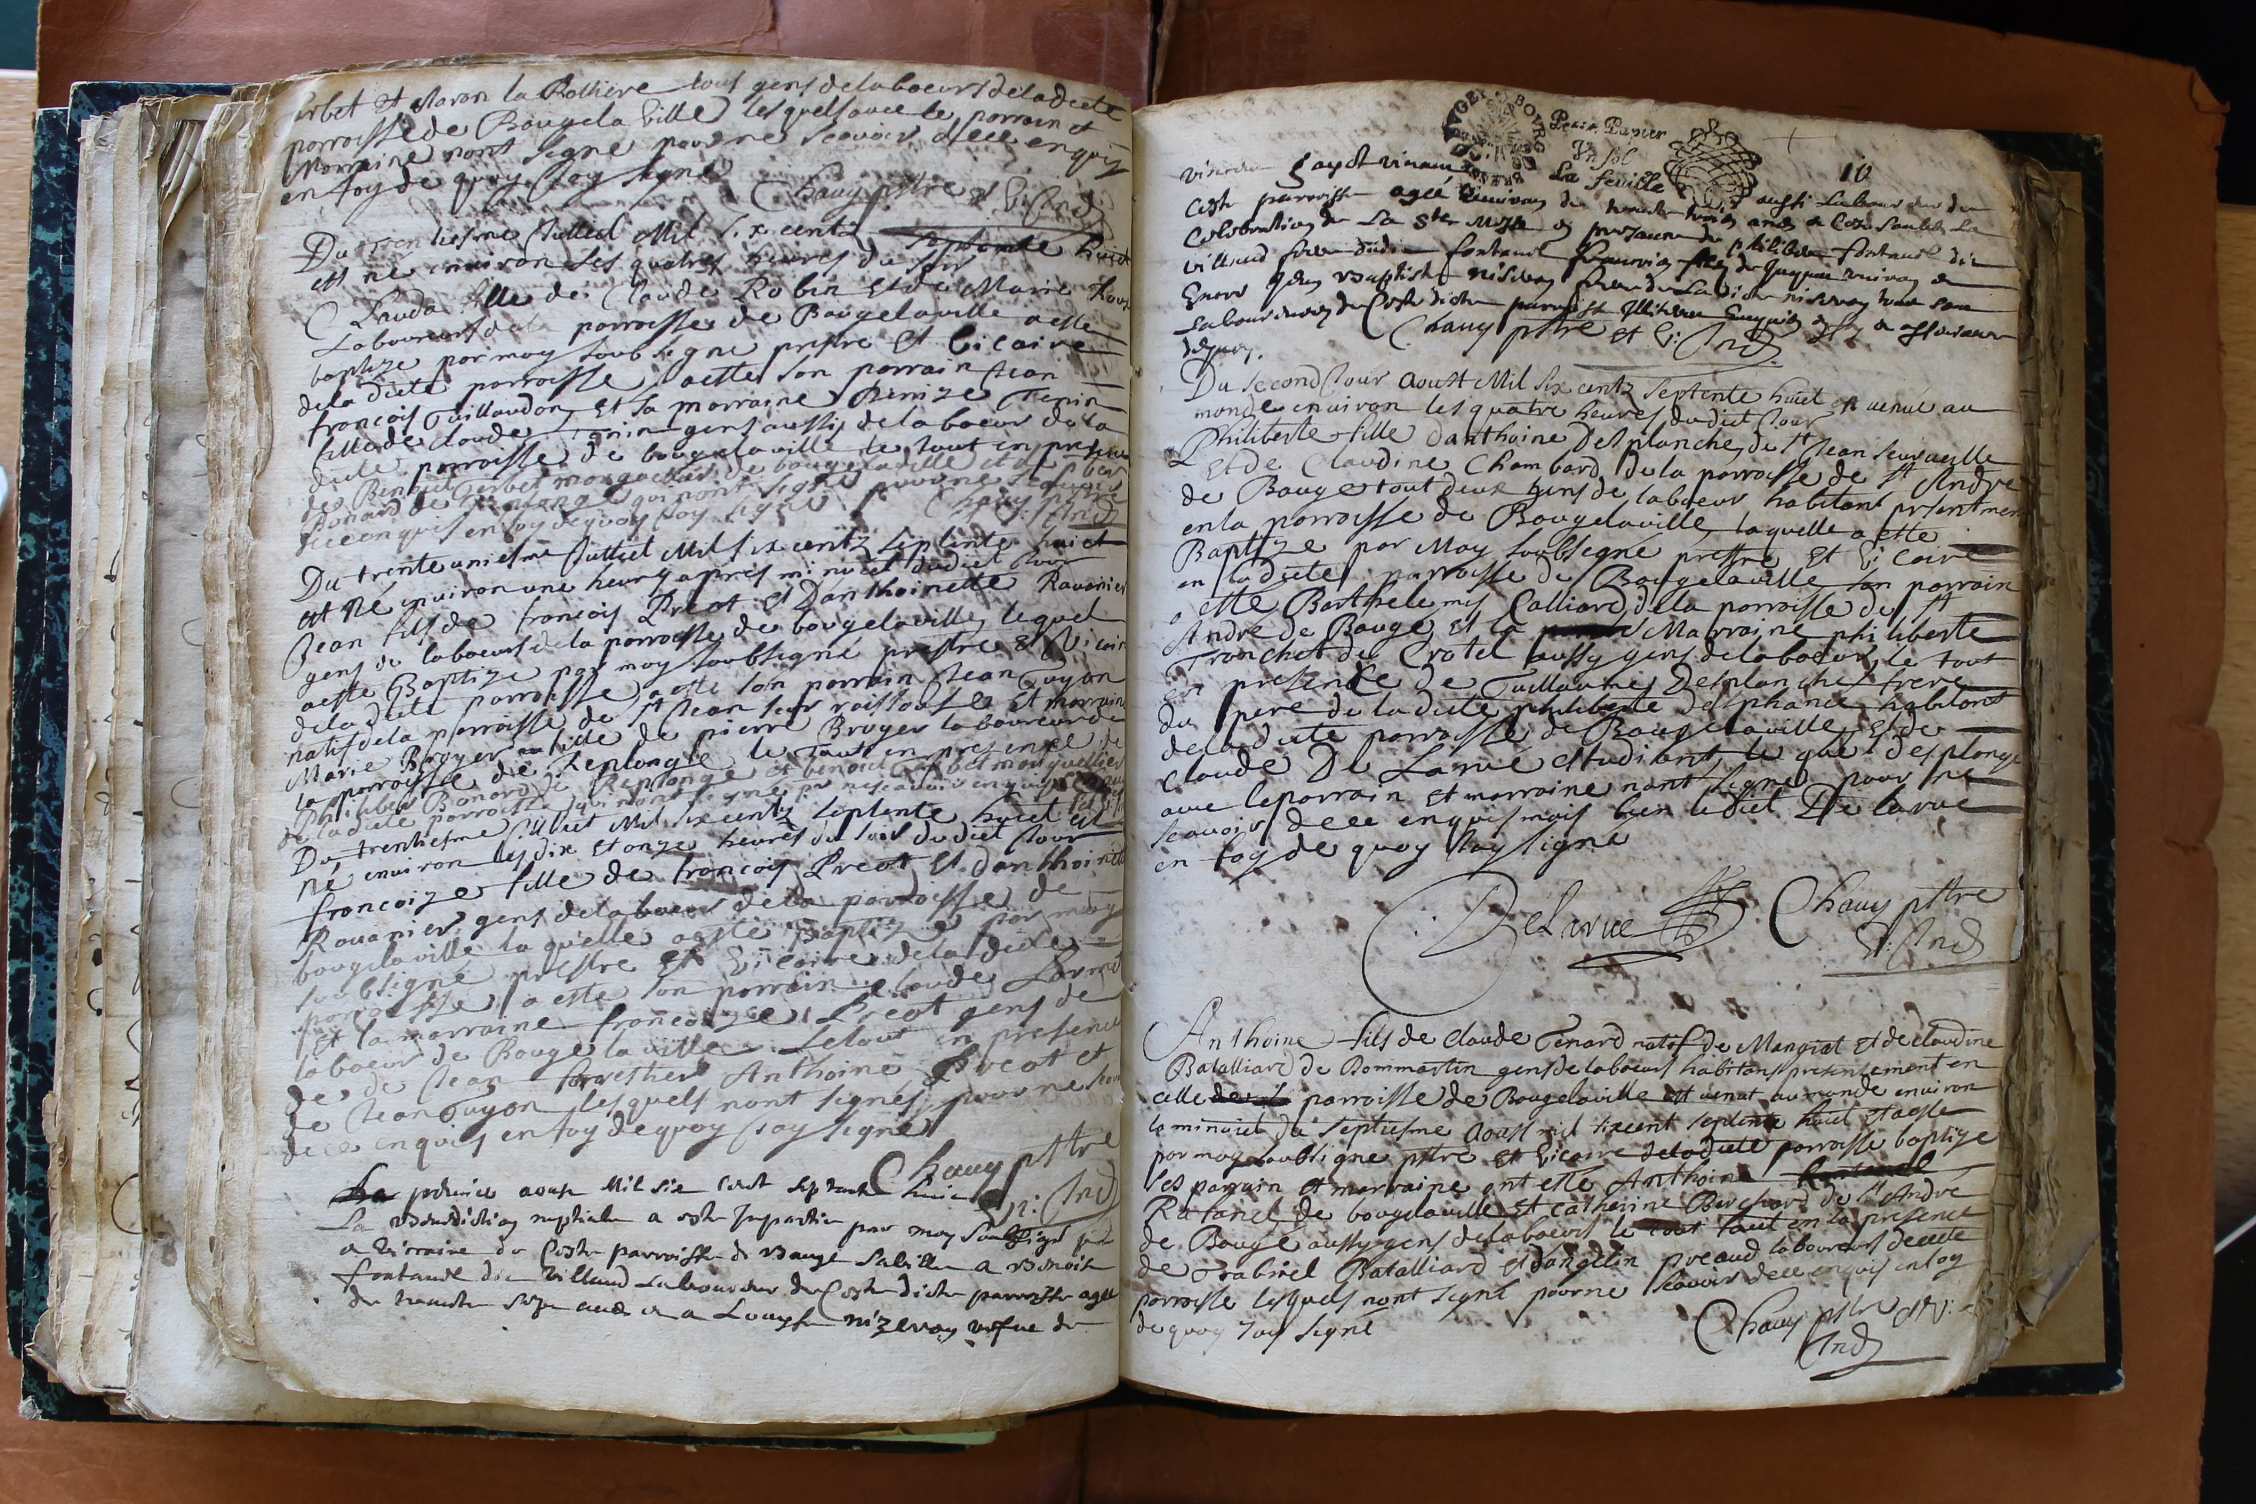 Corbet et Maron la Rottiere tous gens de laboeurs de la dicte
parroisse de Baugelaville lesquels avec le parrain et
Marraine nont signe pour ne scavoir dece enquis
en foy de quoy Jay signe
Chauy pstre et Vi: Ind
Du trentiesme Juillet Mil six centz septente huict
est né environ les quatres heures du soir
Clauda fille de Claude Robin et de Marie
Laboureurs de la parroisse de Baugelaville a esté
baptize par moy soub signe prestre et Vicaire
de la dicte parroisse a esté son parrain Jean
francois Guillaudon et sa marraine Benize Tenin
fille de claude Tenin gens aussi de laboeur de la
dicte parroisse de baugelaville le tout en presence
de Benoict Corbet marguellier de baugelaville et de Philibert
Bonard de Replonge qui nont signe pour ne scavoir
dece enquis en foy de quoy Jay signe Chauy pstre Ind
Du trente uniesme Juillet Mil six centz septente huict
est né environ une heure apres minuict dudict Jour
Jean fils de francois Preot et Danthoinette Ravanier
gens de laboeurs de la parroisse de baugelaville lequel
a esté Baptize par moy soubsigné prestre et Vicaire
de la dicte parroisse a esté son parrain Jean Guyon
natif de la parroisse de St Jean sur raissouse et marraine
Marie Broyer fille de pierre Broyer laboureur de
la parroisse de Replongle le tout en presence de
Philibert Bonard de Replonge et benoict Corbet marguellier
de la dicte parroisse qui nont signe pr ne scavoir enquis
Du trentiesme Juillet Mil six centz septente huict est
né environ les dix et onze heures du soir du dict Jour
francoize fille de francois Preot et danthoinette
Rouanier gens de laboeur de la parroisse de
baugelaville laquelle a esté Baptize par moy
soubsigné prestre et Vicaire de la dicte
parroisse a esté son parrain claude
et la marraine francoize Preot gens de
laboeur de Baugelaville le tout en presence
de Jean Anthoine Preot et
de Jean Guyon lesquels nont signés pour ne scavoir
dece enquis en foy de quoy Jay signe
Chauy pstre
Vi: Ind
premier aoust Mil six cent septante huict
La Benediction nuptiale a este Impartie par moy soubsigne
a Vicaire de Ceste parroisse de Bauge la ville a Benoist
fontanel dit Villaud Laboureur de Ceste dicte parroisse agé
de trente six ans et a Louyse nizeray vefve de
Petit Papier
Un sol
La feuille
10
vivant gayet vivant aussi Laboureur de
Ceste parroisse ageé environ de trente trois ans a Este faicte La
Celebration de La Ste Messe en presence de philibert fontanel dit
villaud frere dudit fontanel
Encor Jean Baptiste nizeray frere de La dicte nizeray tous
Laboureurs de Ceste dicte parroisse Illiterez Enquis
dequoy.
Chauy pstre et Vi: Ind
Du second Jour Aoust Mil six centz septente huict est venue au
monde environ les quatre heures du dict Jour
Philiberte fille danthoine Desplanche de St Jean seurveylle
Et de Claudine Chambard de la parroisse de St Andre
de Bauge tout deux gens de laboeur habitant presentment
en la parroisse de Baugelaville laquelle a esté
Baptize par Moy soubsigné prestre Et Vicaire
en la dicte parroisse de Baugelaville son parrain
a esté Barthelemy Calliard de la parroisse de St
André de Bauge et la Marraine philiberte
Tranchet de Crotel aussy gens de laboeur le tout
en presence de Guillaume Desplanche frere
du pere de la dicte philiberte Desplanche habitant
de la dicte parroisse de Baugelaville Et de
Claude De Larue estudiant le quel desplange
avec le parrain Et marraine nont signe pour ne
scavoir dece enquis mais bien le dict De larue
en foy de quoy Jay signe
DeLarue Chauy pstre
Vi: Ind
Anthoine fils de claude Tenard natif de Mangiet Et de claudine
Batalliard de Dommartin gens de laboeurs habitans presentement en
celle parroisse de Baugelaville est venut au monde environ
la minuict du septiesme Aoust mil sixcent septente huict et a este
par moy soubsigne pstre et Vicaire de la dicte parroisse baptize
ses parrain et marraine ont este Anthoine
Ratanel de baugelaville et catherine Berchard de St Andre
de Bauge aussy gens de laboeurs le tout en la presence
de Gabriel Batalliard et dangelin preaud laboureurs de cette
parroisse lesquels nont signe pour ne scavoir dece enquis en foy
de quoy Jay signe
Chauy pstre et Vi:
Ind